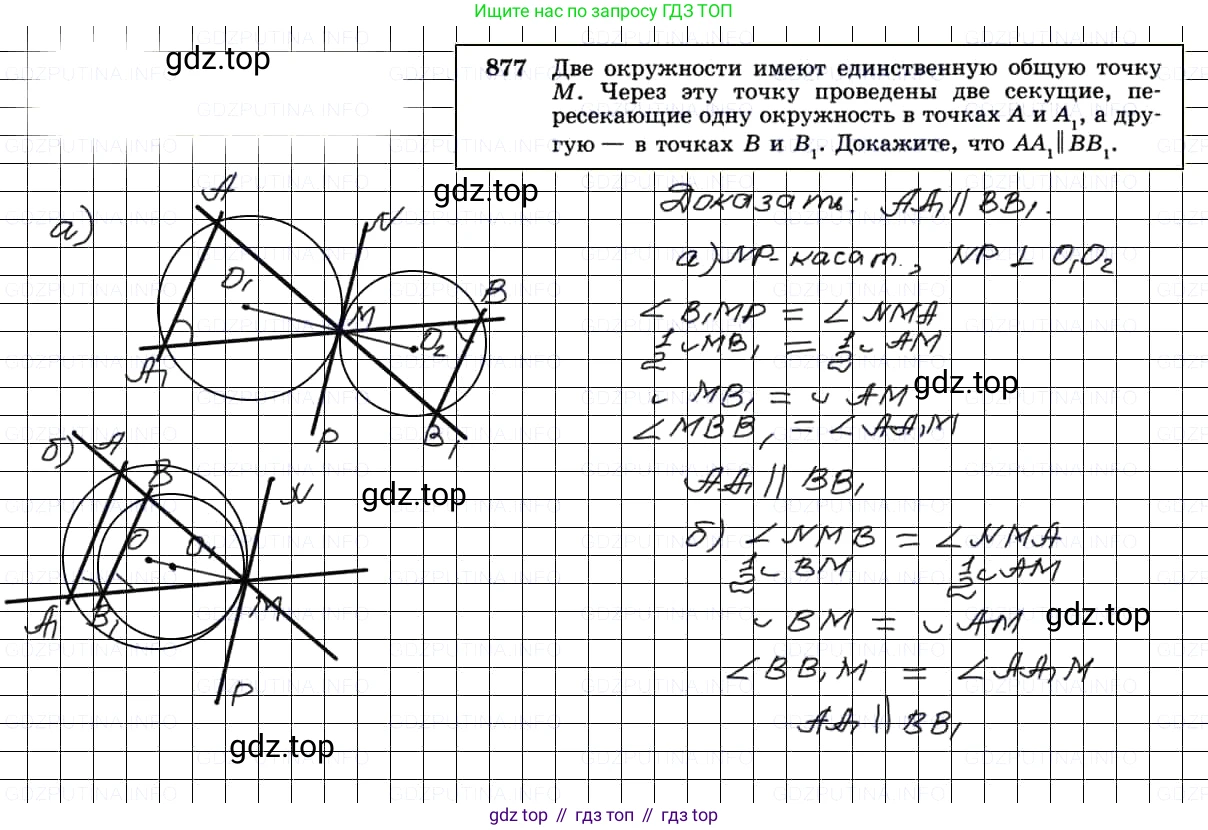 Ищите нас по запросу ГДЗ ТОП
gdz.top
877 Две окружности имеют единственную общую точку
M. Через эту точку проведены две секущие, пе-
ресекающие одну окружность в точках A и A₁, а дру-
гую — в точках B и B₁. Докажите, что AA₁ ∥ BB₁.
gdz.top
Доказать: AA₁ ∥ BB₁.
а)
A
N
O₁
B
M
O₂
A₁
P
B₁
а) NP - касат., NP ⊥ O₁O₂
∠B₁MP = ∠NMA
1/2 ◡MB₁ = 1/2 ◡AM
gdz.top
◡MB₁ = ◡AM
∠MBB₁ = ∠AA₁M
AA₁ ∥ BB₁
б)
A
B
N
O
O₁
M
A₁
B₁
P
gdz.top
б) ∠NMB = ∠NMA
1/2 ◡BM 1/2 ◡AM
gdz.top
◡BM = ◡AM
∠BB₁M = ∠AA₁M
AA₁ ∥ BB₁
gdz.top
gdz.top // гдз топ // gdz top
GDZPUTINA.INFO